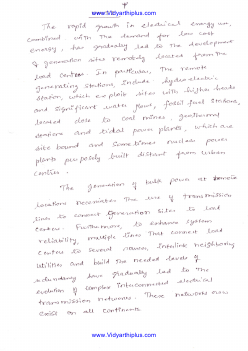 www.Vidyarthiplus.com
The rapid growth in electrical energy use,
combined with the demand for low cost
energy, has gradually led to the development
of generation sites remotely located from the
load centers. In particular, the remote
generating stations include hydroelectric
station, which exploit sites with higher heads
and significant water flows, fossil fuel stations,
located close to coal mines, geothermal
stations and tidal power plants, which are
site bound and sometimes nuclear power
plants purposely built distant from urban
centres.
The generation of bulk power at remote
location necessitates the use of transmission
lines to connect generation sites to load
centres. Furthermore, to enhance system
reliability, multiple lines that connect load
centres to several sources, interlink neighboring
utilities and build the needed levels of
redundancy have gradually led to the
evolution of complex interconnected electrical
transmission networks. These networks now
exist on all continents
www.Vidyarthiplus.com